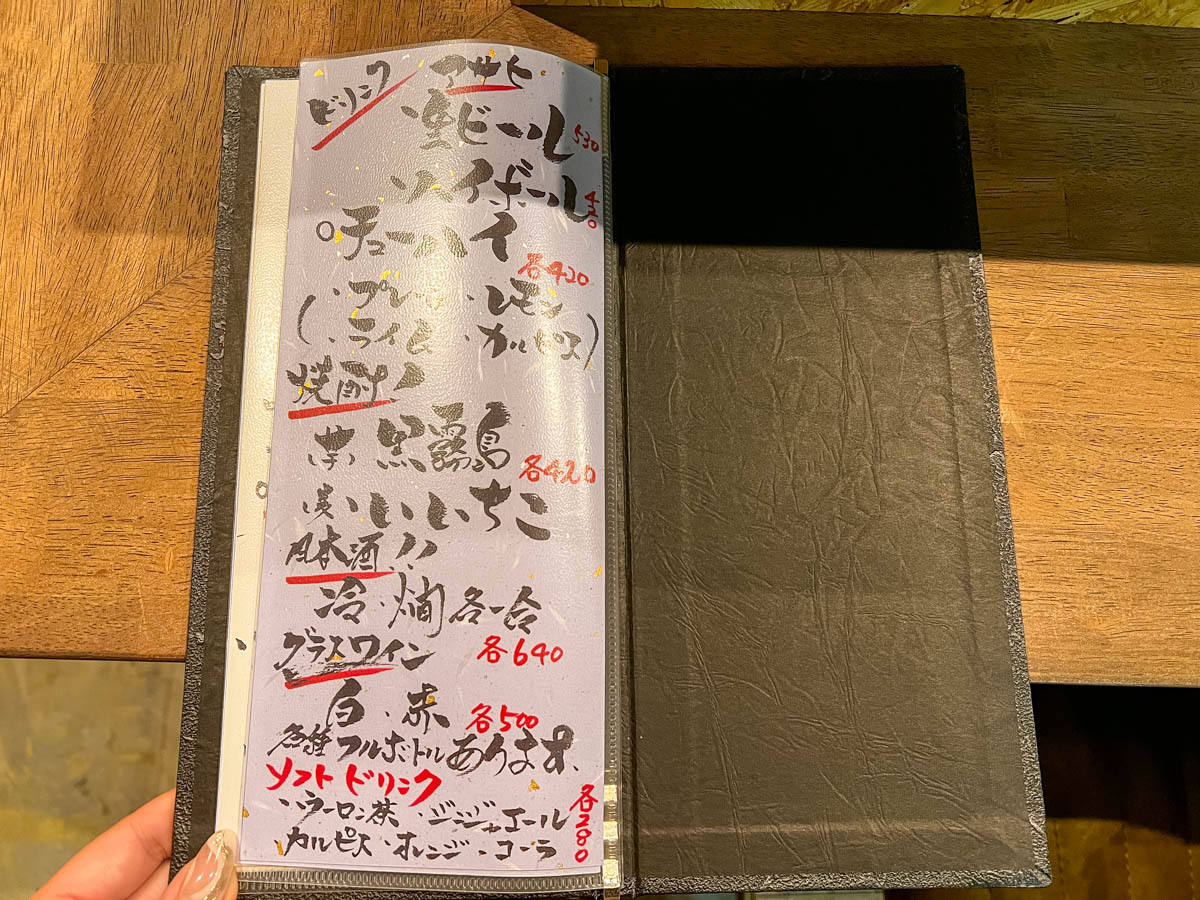 ドリンク アサヒ
・生ビール 530
・ハイボール
○チューハイ
各420
(・プレーン・レモン
・ライム・カルピス)
焼酎!
芋 黒霧島
各420
麦 いいちこ
日本酒!!
冷・燗 各一合
各640
グラスワイン
白・赤 各500
各種フルボトルあります。
ソフトドリンク
・ウーロン茶・ジンジャエール 各280
カルピス・オレンジ・コーラ